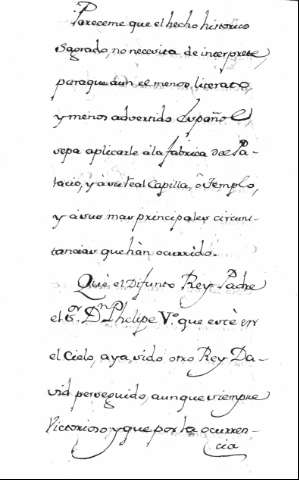 Pareceme que el hecho historico
Sagrado, no necesita de interprete,
para que aun el menos literato,
y menos advertido Español
sepa aplicarle a la fabrica del Pa-
lacio, y à su Real Capilla, ò Templo,
y a sus mas principales circuns-
tancias que hàn ocurrido.
Què el Difunto Rey Padre
el Sr. Dn. Phelipe V.º que estè en
el Cielo, aya sido otro Rey Da-
vid perseguido, aunque siempre
Victorioso, y que por la ocurren-
cia